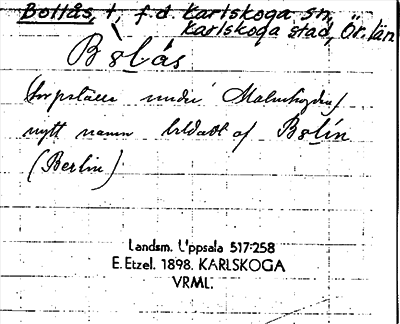 Bottås, t, f.d. Karlskoga sn,
Karlskoga stad, Ör. län
Bolås
torpställe under
nytt namn bildadt af Bolin
(Berlin)
Landsm. Uppsala 517:258
E. Etzel. 1898. KARLSKOGA
VRML.